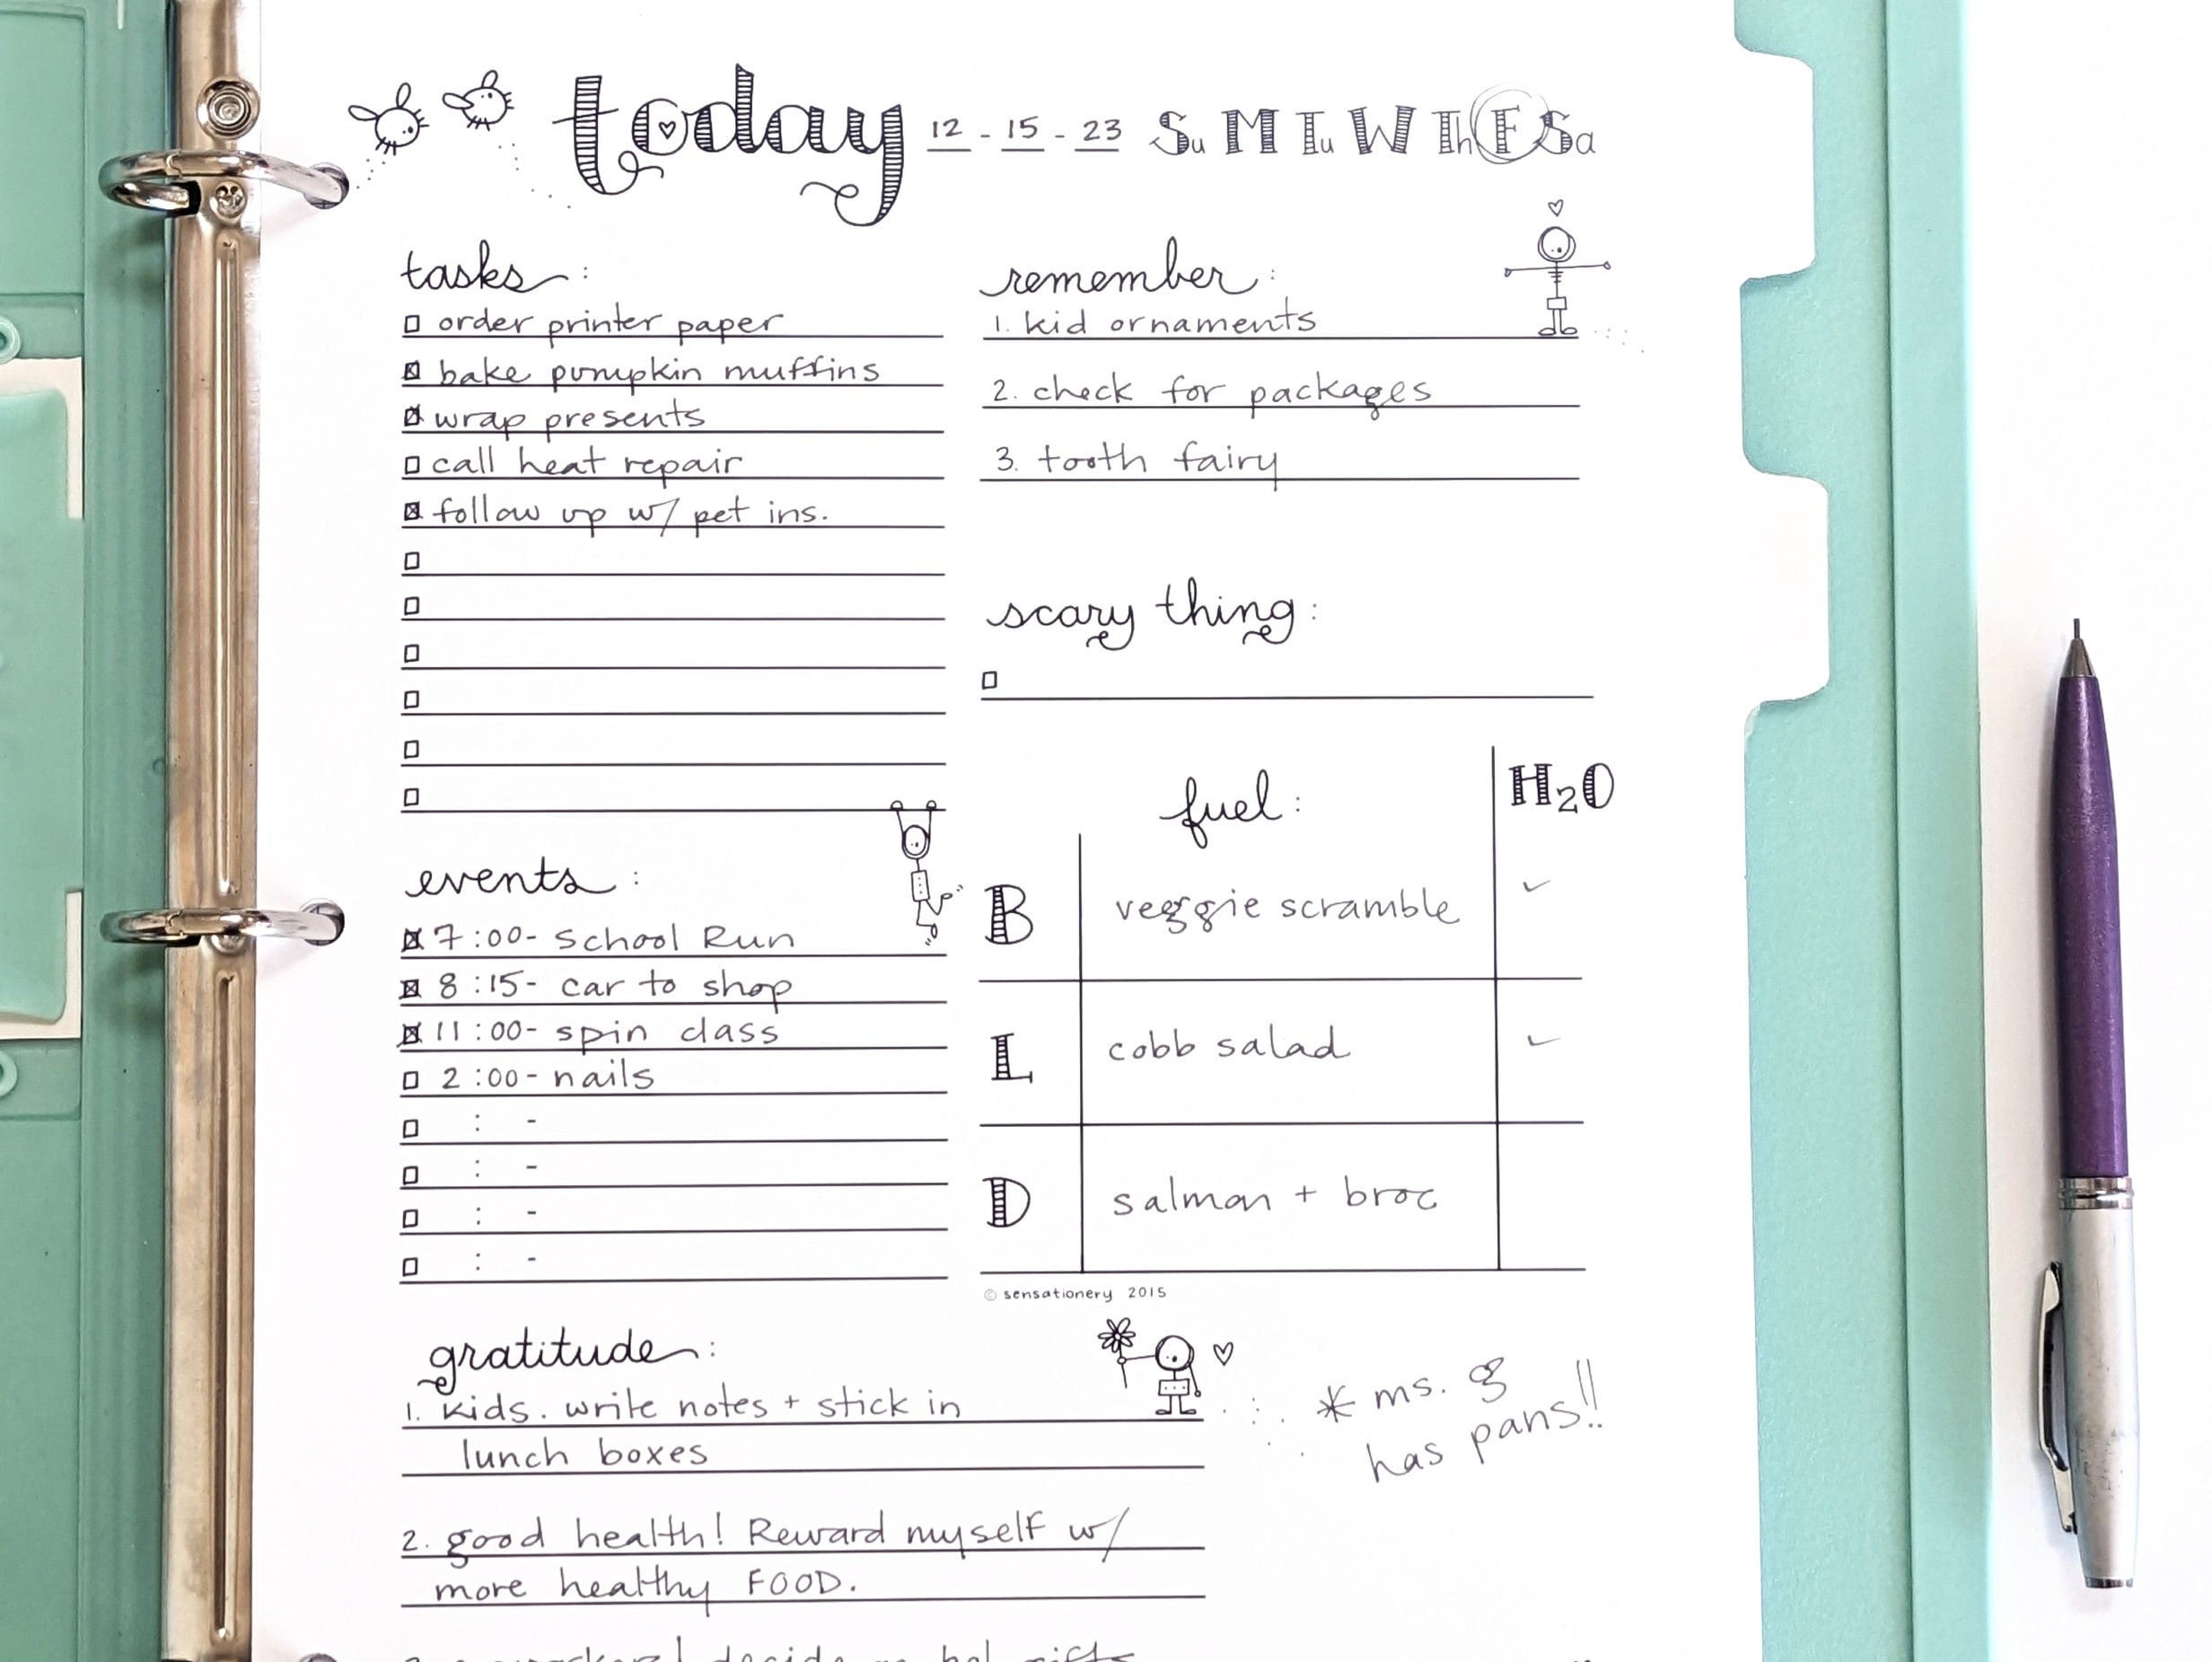 today 12 - 15 - 23 Su M Tu W Th F Sa
tasks:
order printer paper
bake pumpkin muffins
wrap presents
call heat repair
follow up w/ pet ins.
remember:
1. kid ornaments
2. check for packages
3. tooth fairy
scary thing:
events:
7:00- School Run
8:15- car to shop
11:00- spin class
2:00- nails
: -
: -
: -
: -
fuel: H2O
B veggie scramble ✓
L cobb salad ✓
D salmon + broc
© sensationery 2015
gratitude:
1. kids. write notes + stick in
lunch boxes
2. good health! Reward myself w/
more healthy FOOD.
* ms. g
has pans!!
decide